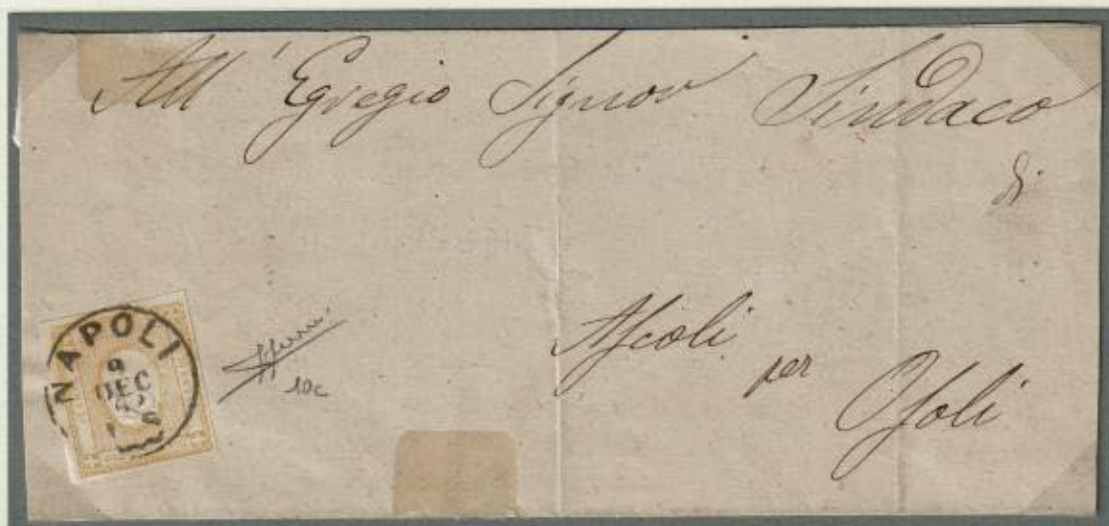 All' Egregio Signor Sindaco
di
Ascoli
per
NAPOLI
9
DEC
10c